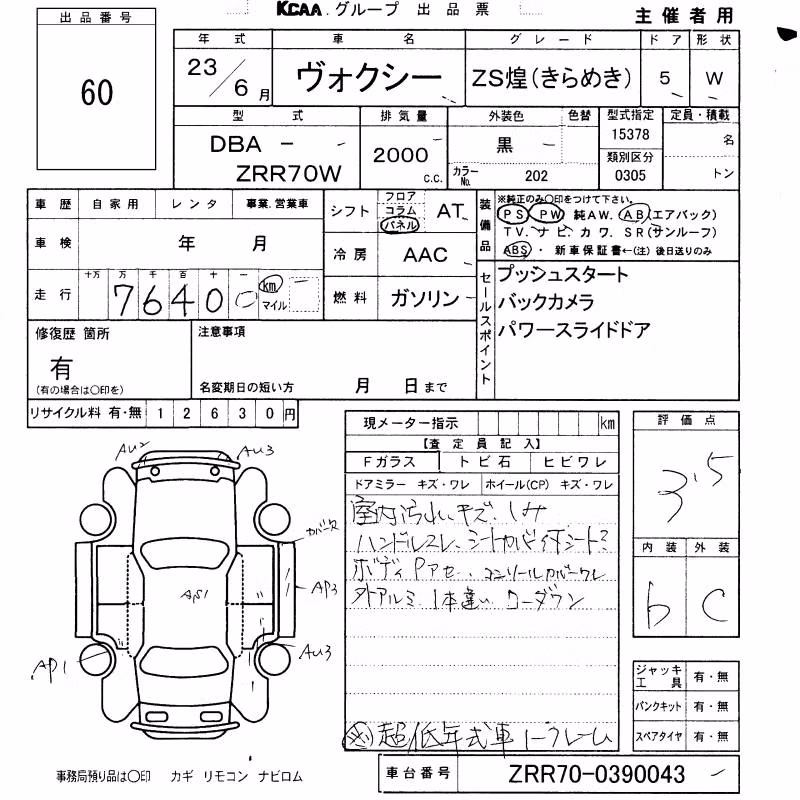 KCAA.グループ 出品票
主催者用
出品番号
60
年式 車名 グレード ドア 形状
23/6月 ヴォクシー ZS煌(きらめき) 5 W
型式 排気量 外装色 色替 型式指定 定員・積載
DBA-
ZRR70W
2000 c.c.
黒
カラーNo. 202
15378
類別区分
0305
名
トン
車歴 自家用 レンタ 事業.営業車
車検 年 月
走行 十万 万 千 百 十 一
7 6 4 0 0 km マイル
シフト フロア コラム パネル AT
冷房 AAC
燃料 ガソリン
装備品
※純正のみ○印をつけて下さい。
PS PW 純AW. AB(エアバック)
TV. ナビ. カワ. SR(サンルーフ)
ABS・新車保証書←(注)後日送りのみ
セールスポイント
プッシュスタート
バックカメラ
パワースライドドア
修復歴 箇所
有
(有の場合は○印を)
注意事項
名変期日の短い方 月 日まで
リサイクル料 有・無 12630円
現メーター指示 km
【査定員記入】
Fガラス トビ石 ヒビワレ
ドアミラー キズ・ワレ ホイール(CP) キズ・ワレ
室内汚れ.キズ.シミ
ハンドルスレ、シートカバー付
ボディ コンソールカバーワレ
外アルミ 1本違い ローダウン
超低年式車
評価点
3.5
内装 外装
b C
ジャッキ 工具 有・無
パンクキット 有・無
スペアタイヤ 有・無
AU2 AU3
カバー欠
AP3
AP1
AU3
事務局預り品は○印 カギ リモコン ナビロム
車台番号 ZRR70-0390043